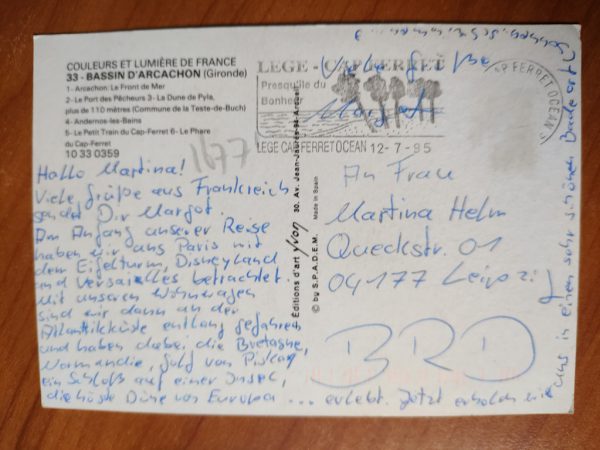 COULEURS ET LUMIÈRE DE FRANCE
33 - BASSIN D'ARCACHON (Gironde)
1- Arcachon: Le Front de Mer
2- Le Port des Pêcheurs 3- La Dune de Pyla,
plus de 110 mètres (Commune de la Teste-de-Buch)
4- Andernos-les-Bains
5- Le Petit Train du Cap-Ferret 6- Le Phare
du Cap-Ferret
10 33 0359
1477
Hallo Martina!
Viele Grüße aus Frankreich
sendet Dir Margot.
Am Anfang unserer Reise
haben wir uns Paris mit
dem Eifelturm, Disneyland
und Versailles betrachtet.
Mit unseren Wohnwagen
sind wir dann an der
Atlantikküste entlang gefahren
und haben dabei die Bretagne,
Normandie, Golf von Biskay
ein Schloß auf einer Insel,
die höste Düne von Europa ... erlebt. Jetzt erholen wir
uns in einem sehr schönen Badeort
Viele Grüße
Margot
LEGE - CAP FERRET
Presqu'île du
Bonheur
LEGE CAP FERRET OCEAN 12-7-95
CAP FERRET OCEAN
Editions d'art yvon 30, Av. Jean-Jaurès-94-Arcueil
© by S.P.A.D.E.M. Made in Spain
An Frau
Martina Helm
Queckstr. 01
04177 Leipzig
BRD